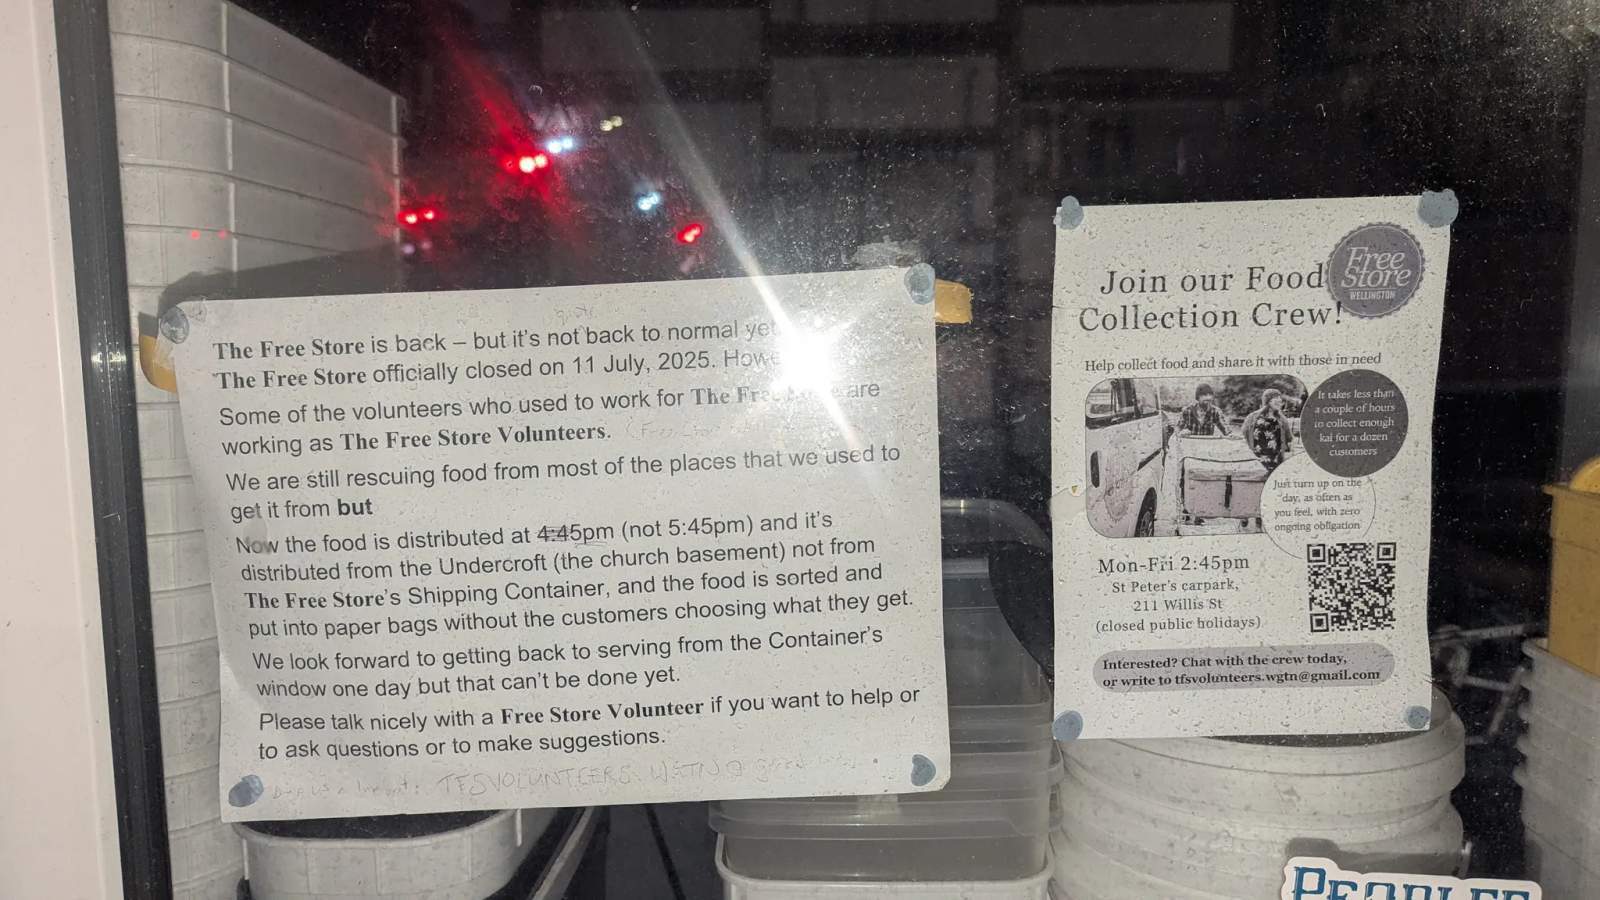 The Free Store is back – but it's not back to normal yet
The Free Store officially closed on 11 July, 2025. Howe
Some of the volunteers who used to work for The Free are
working as The Free Store Volunteers.
We are still rescuing food from most of the places that we used to
get it from but
Now the food is distributed at 4:45pm (not 5:45pm) and it's
distributed from the Undercroft (the church basement) not from
The Free Store's Shipping Container, and the food is sorted and
put into paper bags without the customers choosing what they get.
We look forward to getting back to serving from the Container's
window one day but that can't be done yet.
Please talk nicely with a Free Store Volunteer if you want to help or
to ask questions or to make suggestions.
TFSVOLUNTEERS.WGTN@
Free
Store
WELLINGTON
Join our Food
Collection Crew!
Help collect food and share it with those in need
It takes less than
a couple of hours
to collect enough
kai for a dozen
customers
Just turn up on the
day, as often as
you feel, with zero
ongoing obligation
Mon-Fri 2:45pm
St Peter's carpark,
211 Willis St
(closed public holidays)
Interested? Chat with the crew today,
or write to tfsvolunteers.wgtn@gmail.com
PEOPLES